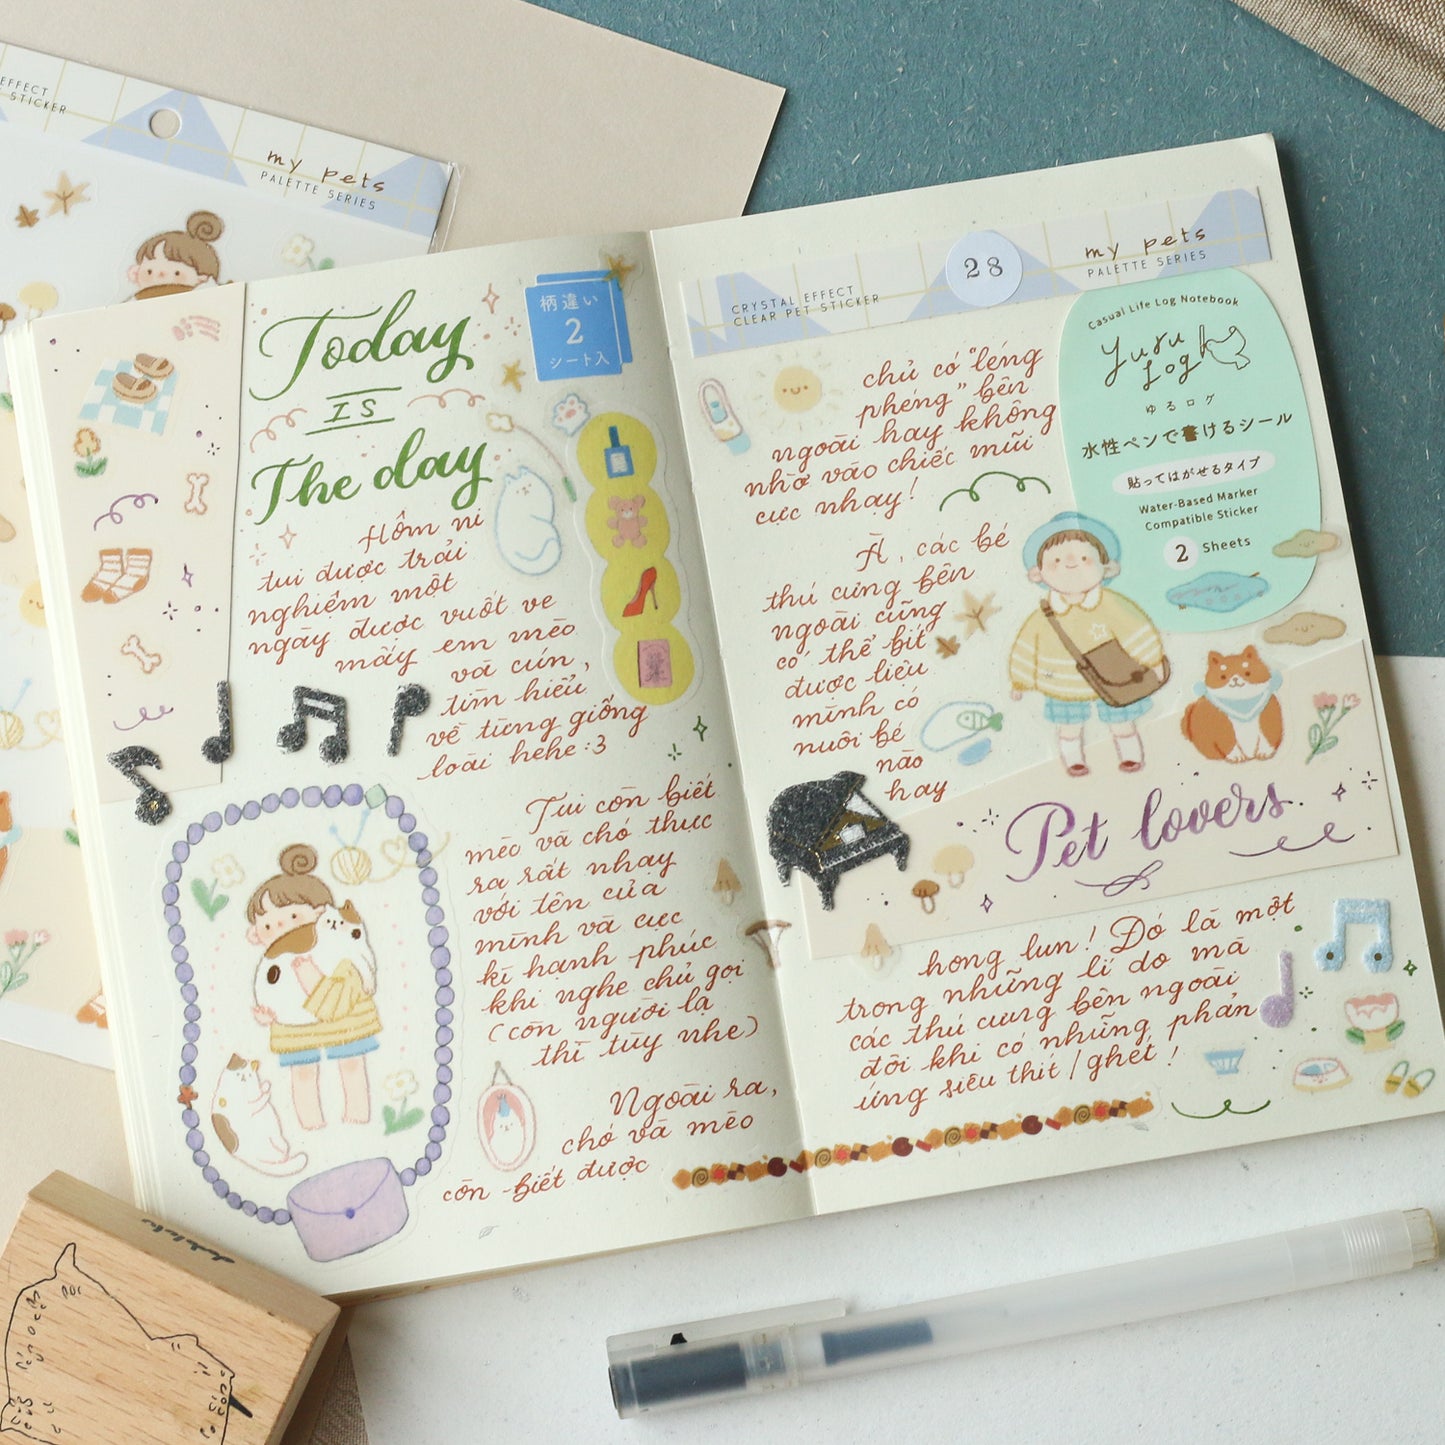 EFFECT
STICKER
my pets
PALETTE SERIES
Today
IS
The day
柄違い
2
シート入
Hôm ni
tui được trải
nghiệm một
ngày được vuốt ve
mấy em mèo
và cún,
tìm hiểu
về từng giống
loài hehe :3
Tui còn biết
mèo và chó thực
ra rất nhạy
với tên của
mình và cực
kì hạnh phúc
khi nghe chủ gọi
(còn người lạ
thì tùy nhe)
Ngoài ra,
chó và mèo
còn biết được
CRYSTAL EFFECT
CLEAR PET STICKER
28
my pets
PALETTE SERIES
chủ có "léng
phéng" bên
ngoài hay không
nhờ vào chiếc mũi
cực nhạy!
Casual Life Log Notebook
yuru
log
ゆるログ
水性ペンで書けるシール
貼ってはがせるタイプ
Water-Based Marker
Compatible Sticker
2 Sheets
À, các bé
thú cưng bên
ngoài cũng
có thể bít
được liệu
mình có
nuôi bé
nào
hay
Pet lovers
hong lun! Đó là một
trong những lí do mà
các thú cưng bên ngoài
đôi khi có những phản
ứng siêu thít/ghét!